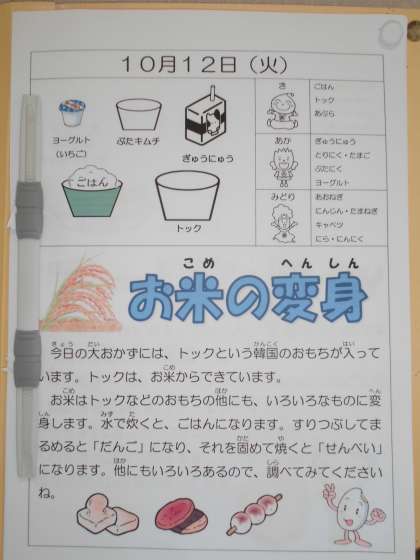 10月12日（火）
ヨーグルト
（いちご）
ぶたキムチ
ぎゅうにゅう
ごはん
トック
き
ごはん
トック
あぶら
あか
ぎゅうにゅう
とりにく・たまご
ぶたにく
ヨーグルト
みどり
あおねぎ
にんじん・たまねぎ
キャベツ
にら・にんにく
こめ へんしん
お米の変身
きょう だい かんこく はい
今日の大おかずには、トックという韓国のおもちが入って
こめ
います。トックは、お米からできています。
こめ ほか へん
お米はトックなどのおもちの他にも、いろいろなものに変
しん みず た
身します。水で炊くと、ごはんになります。すりつぶしてま
かた や
るめると「だんご」になり、それを固めて焼くと「せんべい」
ほか しら
になります。他にもいろいろあるので、調べてみてください
ね。